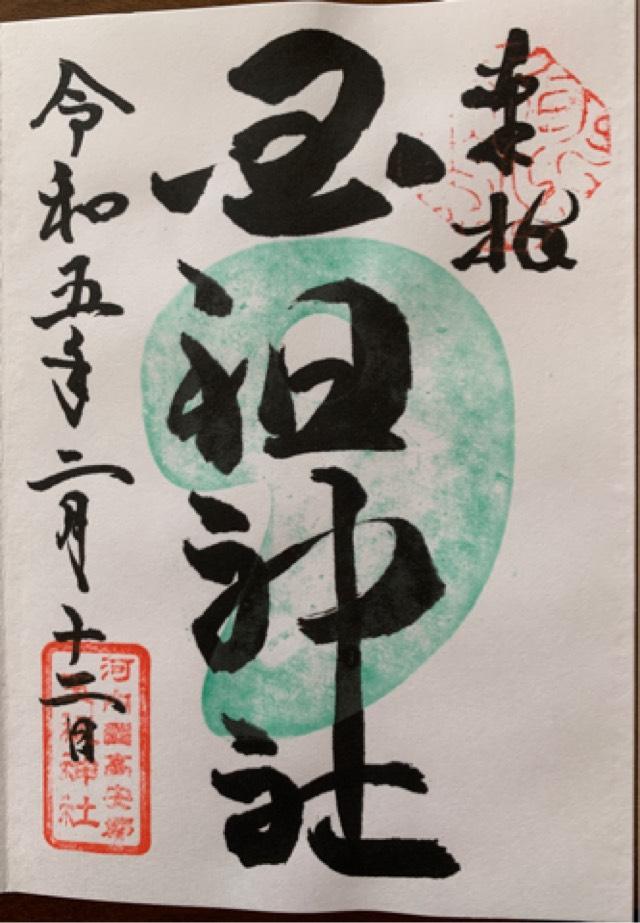 奉拝
玉祖神社
令和五年二月十二日
河内國高安郷
玉祖神社